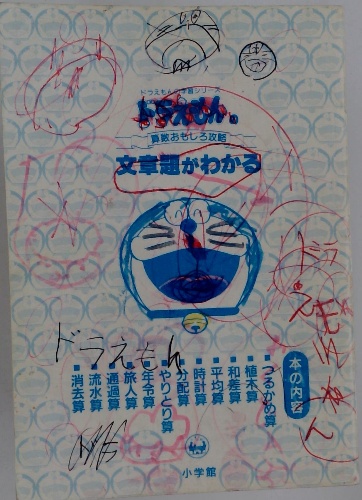 ドラえもんの学習シリーズ
ドラえもんの
算数おもしろ攻略
文章題がわかる
ドラえもん
ドラえもん
本の内容
■つるかめ算
■植木算
■和差算
■平均算
■時計算
■分配算
■やりとり算
■年令算
■旅人算
■通過算
■流水算
■消去算
小学館